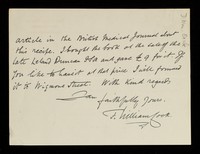 article in the British Medical Journal about
this recipe. I bought the book at the sale of the
late Leland Duncan Coll and gave £9 for it. If
you like to have it at that price I will forward
it to Wigmore Street. With kind regards
I am
faithfully yours.
T. William Cook